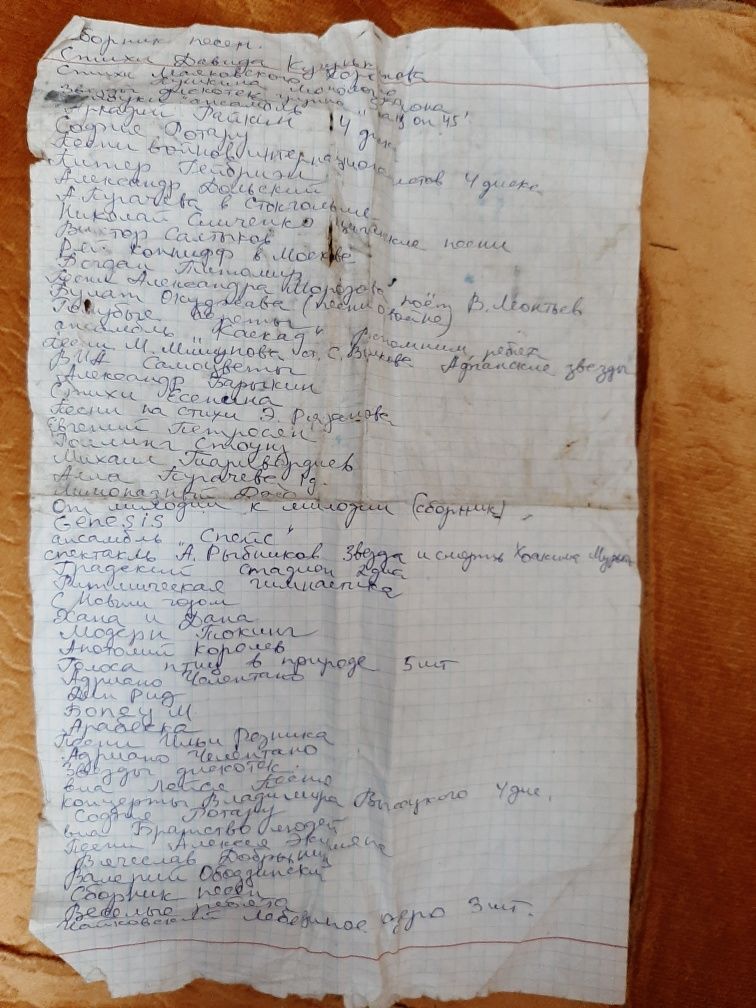 Сборник песен.
Стихи Давида Кугульт
Стихи Маяковского
Пушкина
Звезды дискотек группа "Stars on 45"
ансамбль
Аркадий Райкин 4 диск
София Ротару
Песни воинов интернационалистов 4 диска
Питер Гейбриэл
Александр Дольский
А Пугачева в Стокгольме
Николай Сличенко цыганские песни
Виктор Салтыков
Рей Коннифф в Москве
Богдан Титомир
Песни Александра Морозова поёт В. Леонтьев
Булат Окуджава (песни о войне)
Голубые береты
ансамбль "Каскад" Вспомним, ребята
Песни М. Минуова ст. С. Афганские звезды
ВИА Самоцветы
Александр Барыкин
Стихи Есенина
Песни на стихи Э. Рязанова
Евгений Петросян
Роллинг Стоунз
Михаил Таривердиев
Алла Пугачева 1д.
Лимонадный Джо
От мелодии к мелодии (сборник)
Genesis
ансамбль "Спейс"
спектакль А. Рыбников Звезда и смерть Хоакина Мурьеты
Градский стадион 2диа
Ритмическая гимнастика
С Новым годом
Хана и Дана
Модерн Токинг
Анатолий Королев
Голоса птиц в природе 5шт
Адриано Челентано
Дин Рид
Бонеу М
Арабеска
Песни Ильи Резника
Адриано Челентано
Звезды дискотек.
виа Лейся Песня
Концерты Владимира Высоцкого 4дис.
София Ротару
виа Братство людей
Песни Алексея Экимяна
Вячеслав Добрынин
Валерий Ободзинский
Сборник песен
Веселые ребята
Чайковский Лебединое озеро 3шт.